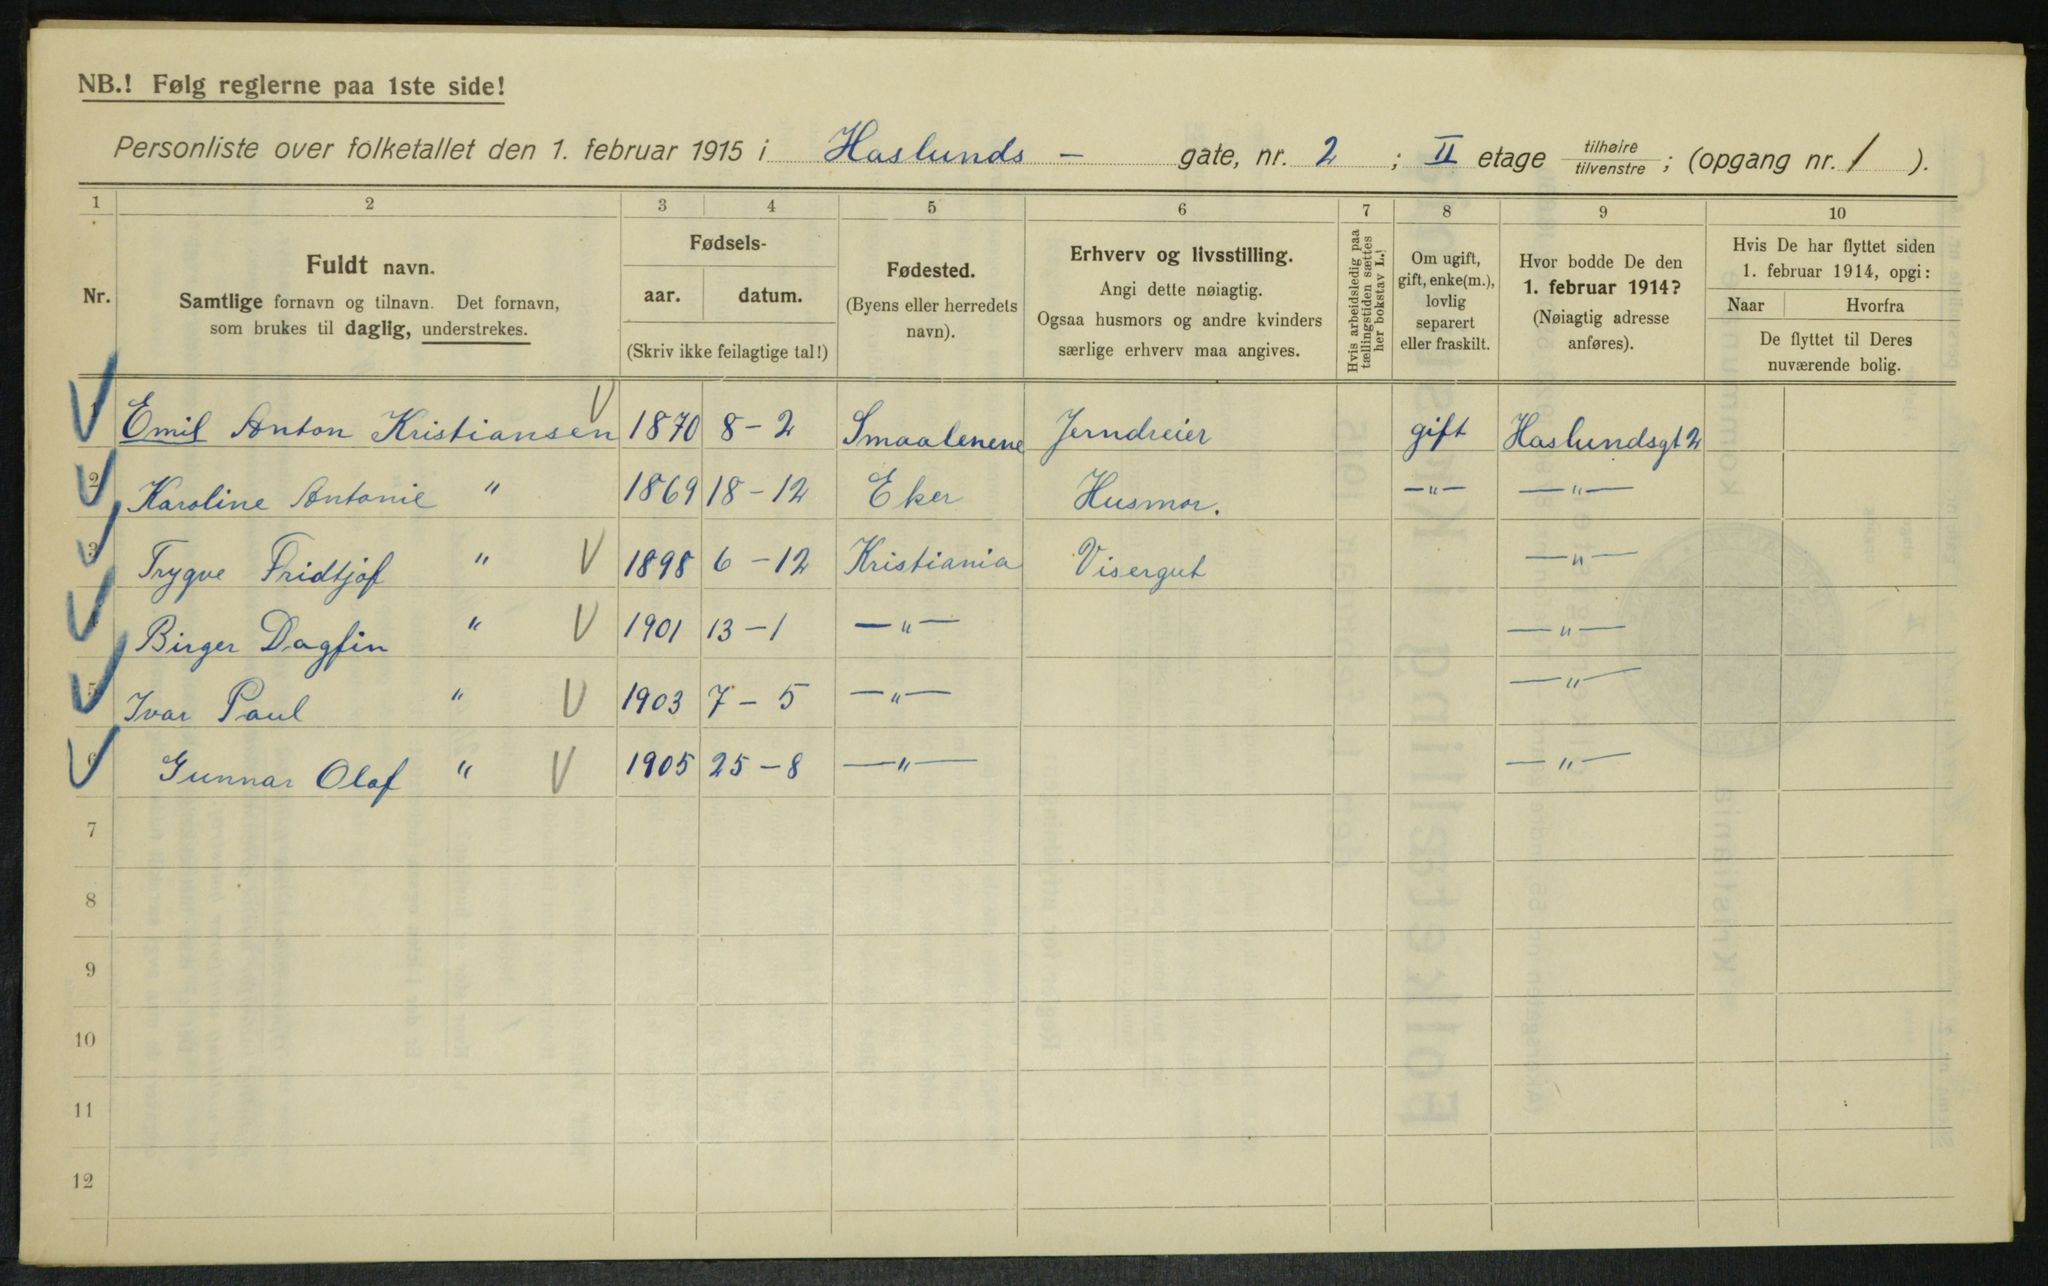 NB.! Følg reglerne paa 1ste side!
Personliste over folketallet den 1. februar 1915 i Haslunds - gate, nr. 2 ; II etage tilhøire/tilvenstre ; (opgang nr. 1 ).
1 2 3 4 5 6 7 8 9 10
Nr.
Fuldt navn.
Samtlige fornavn og tilnavn. Det fornavn,
som brukes til daglig, understrekes.
Fødsels-
aar. datum.
(Skriv ikke feilagtige tal!)
Fødested.
(Byens eller herredets
navn).
Erhverv og livsstilling.
Angi dette nøiagtig.
Ogsaa husmors og andre kvinders
særlige erhverv maa angives.
Hvis arbeidsledig paa
tællingstiden sættes
her bokstav L.!
Om ugift,
gift, enke(m.),
lovlig
separert
eller fraskilt.
Hvor bodde De den
1. februar 1914?
(Nøiagtig adresse
anføres).
Hvis De har flyttet siden
1. februar 1914, opgi:
Naar Hvorfra
De flyttet til Deres
nuværende bolig.
1 Emil Anton Kristiansen 1870 8-2 Smaalenene Jerndreier gift Haslundsgt 2
2 Karoline Antonie " 1869 18-12 Eker Husmor. -"- -"-
3 Trygve Fridtjof " 1898 6-12 Kristiania Visergut -"-
4 Birger Dagfin " 1901 13-1 -"- -"-
5 Ivar Paul " 1903 7-5 -"- -"-
6 Gunnar Olaf " 1905 25-8 -"- -"-
7
8
9
10
11
12